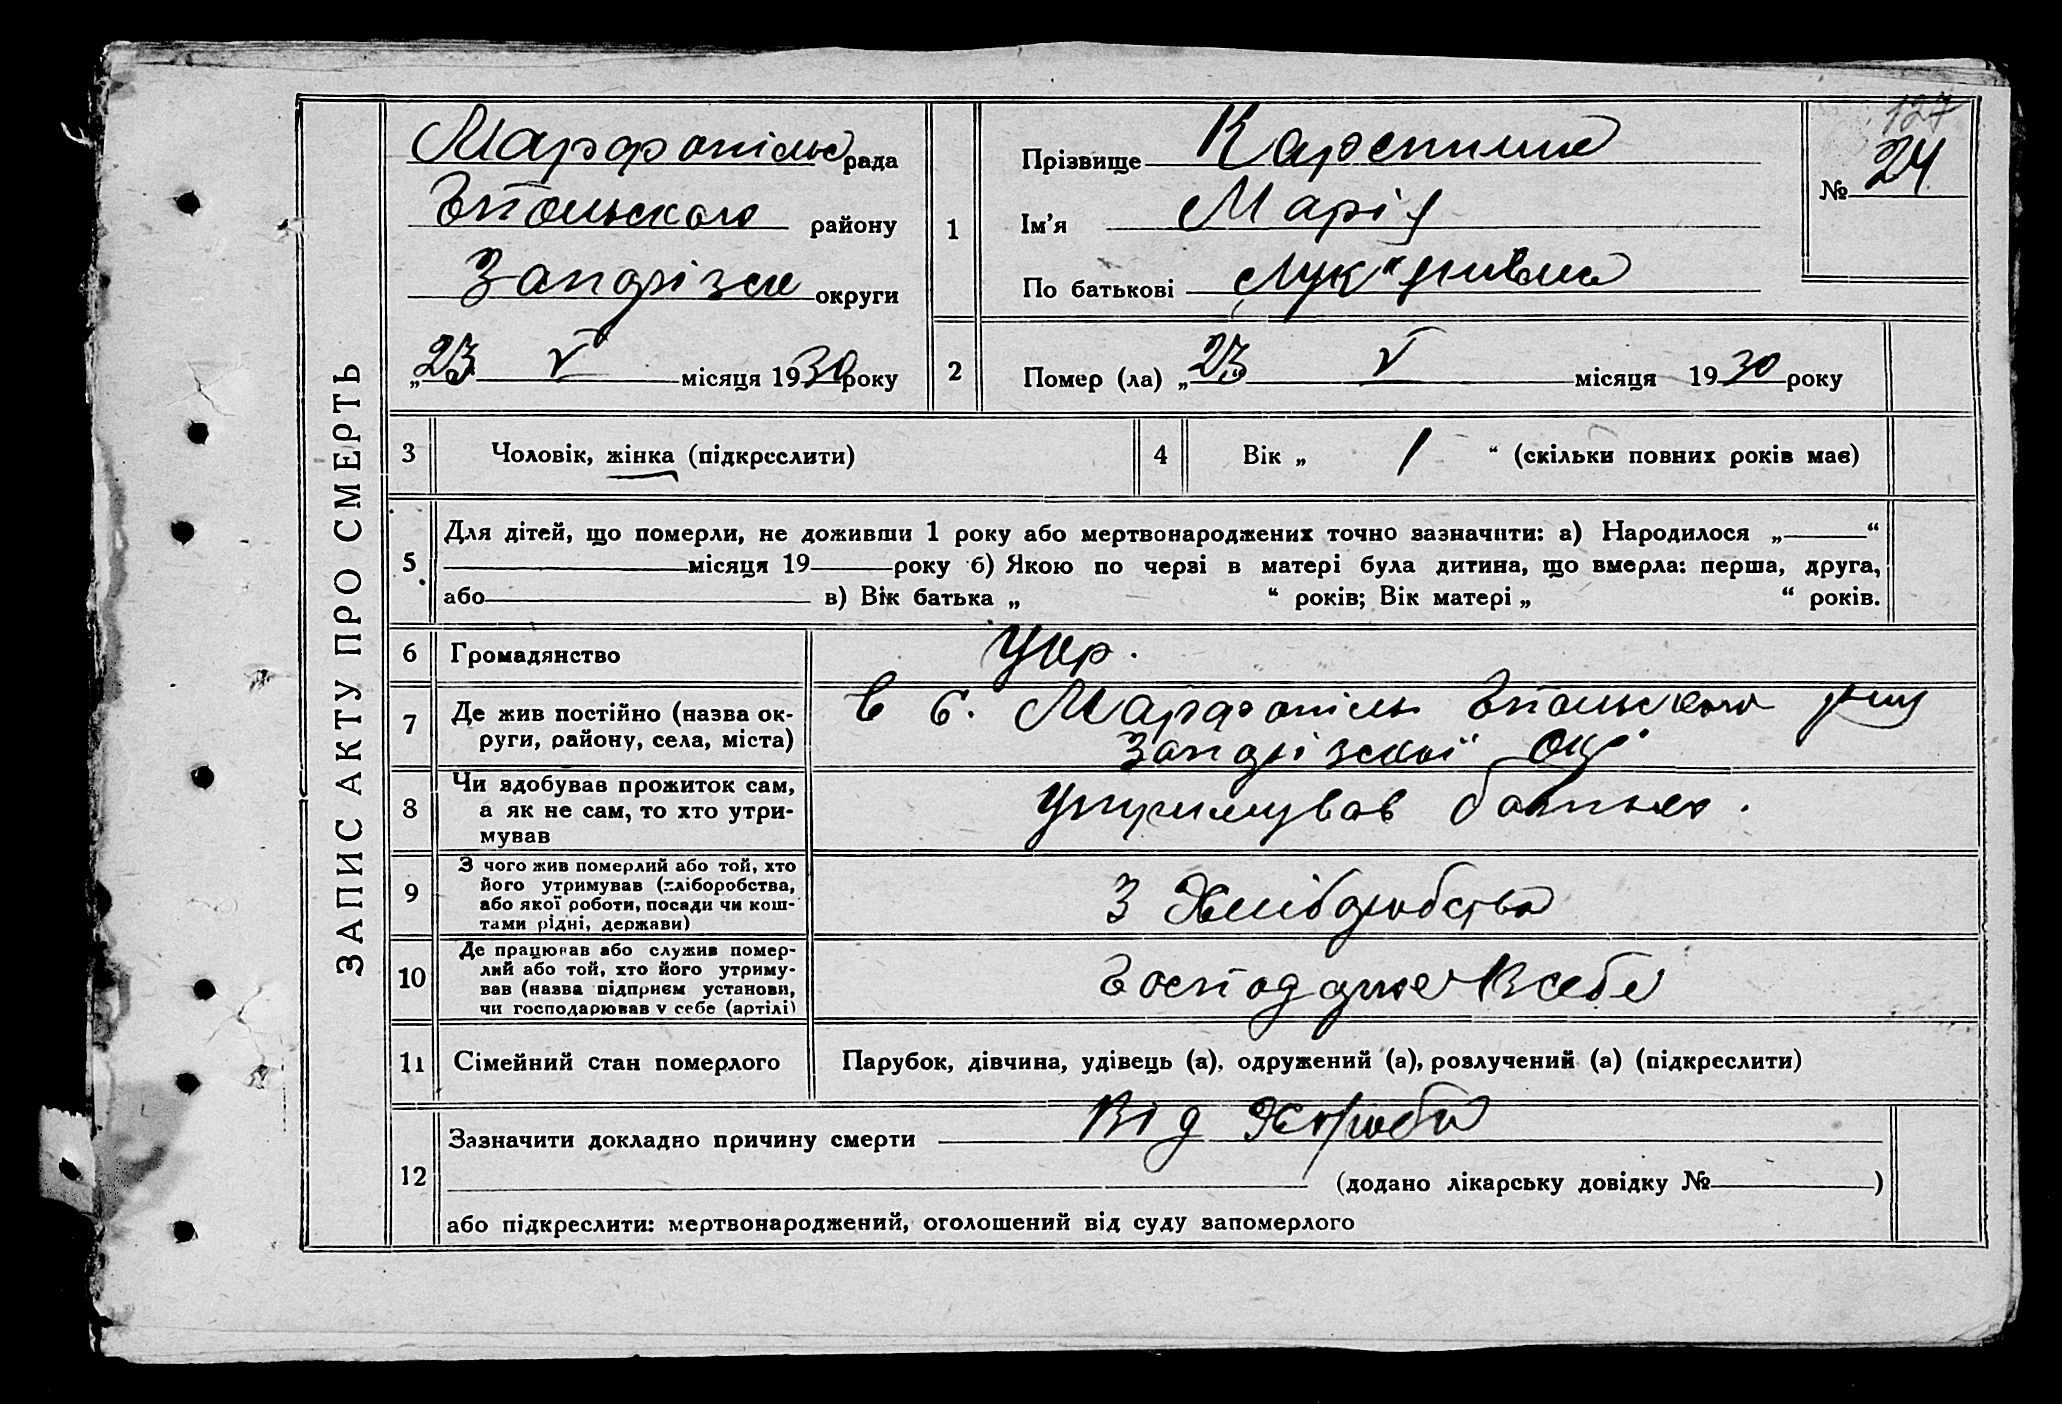 ЗАПИС АКТУ ПРО СМЕРТЬ
127
Марфопільс рада
Гпільського району
Запорізьк округи
„23 V місяця 1930 року
1
Прізвище
Ім'я Марія
По батькові Лук"янівна
№ 24
2
Помер (ла) „23 V місяця 1930 року
3
Чоловік, жінка (підкреслити)
4
Вік „ 1 “ (скільки повних років має)
5
Для дітей, що померли, не доживши 1 року або мертвонароджених точно зазначити: а) Народилося „ “
місяця 19 року б) Якою по черзі в матері була дитина, що вмерла: перша, друга,
або в) Вік батька „ “ років; Вік матері „ “ років.
6
Громадянство
Укр.
7
Де жив постійно (назва ок-
руги, району, села, міста)
в с. Марфопіль Гпільського
Запорізської окр
8
Чи здобував прожиток сам,
а як не сам, то хто утри-
мував
Утримував батько.
9
З чого жив померлий або той, хто
його утримував (хліборобства,
або якої роботи, посади чи кош-
тами рідні, держави)
З Хліборобства
10
Де працював або служив помер-
лий або той, хто його утриму-
вав (назва підприєм установи,
чи господарював у себе (артілі)
Господарює в себе
11
Сімейний стан померлого
Парубок, дівчина, удівець (а), одружений (а), розлучений (а) (підкреслити)
12
Зазначити докладно причину смерти Від Хороби
(додано лікарську довідку № )
або підкреслити: мертвонароджений, оголошений від суду запомерлого